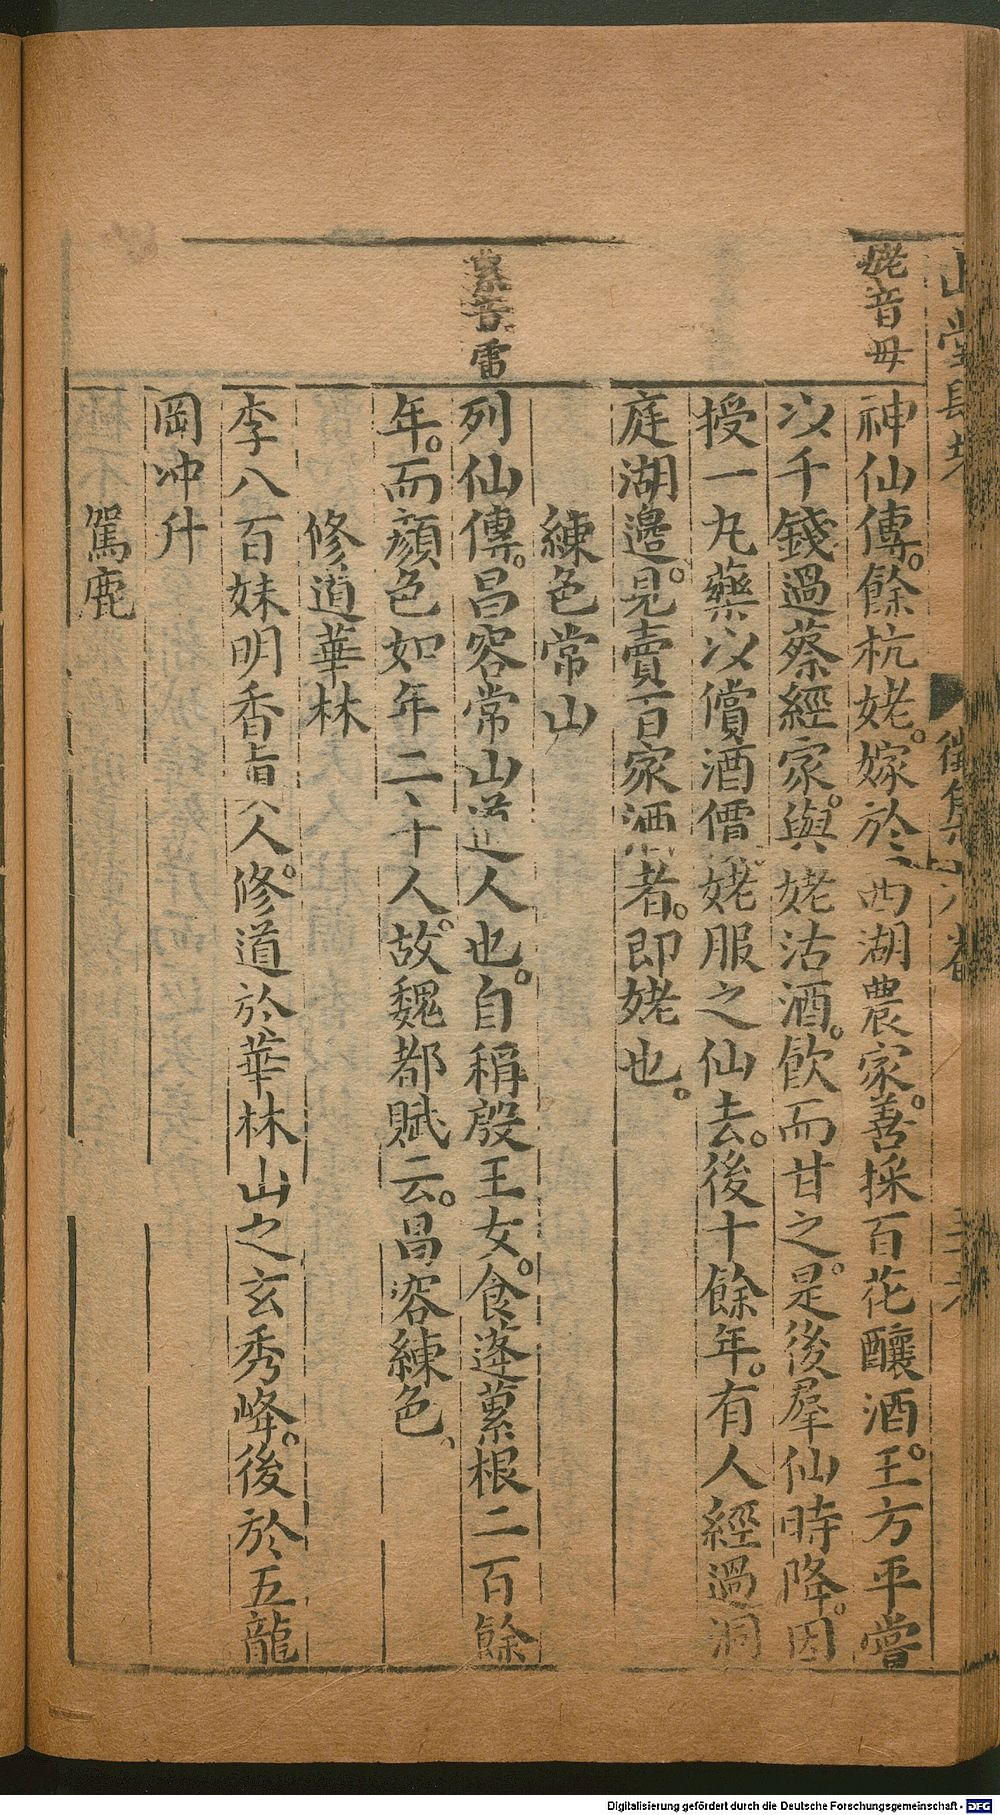 山堂肆考
徵集 卷
姥音毋
神仙傳。餘杭姥。嫁於西湖農家。善採百花釀酒。王方平嘗
以千錢過蔡經家。與姥沽酒。飲而甘之。是後羣仙時降。因
授一丸藥以償酒僭姥服之仙去。後十餘年。有人經過洞
庭湖邊。見賣百家酒者。即姥也。
練色常山
蔂音雷
列仙傳。昌容常山道人也。自稱殷王女。食蓬蔂根二百餘
年。而顏色如年二十人。故魏都賦云。昌容練色、
修道華林
李八百妹明香眞人。修道於華林山之玄秀峰。後於五龍
岡冲升
駕鹿
Digitalisierung gefördert durch die Deutsche Forschungsgemeinschaft - DFG